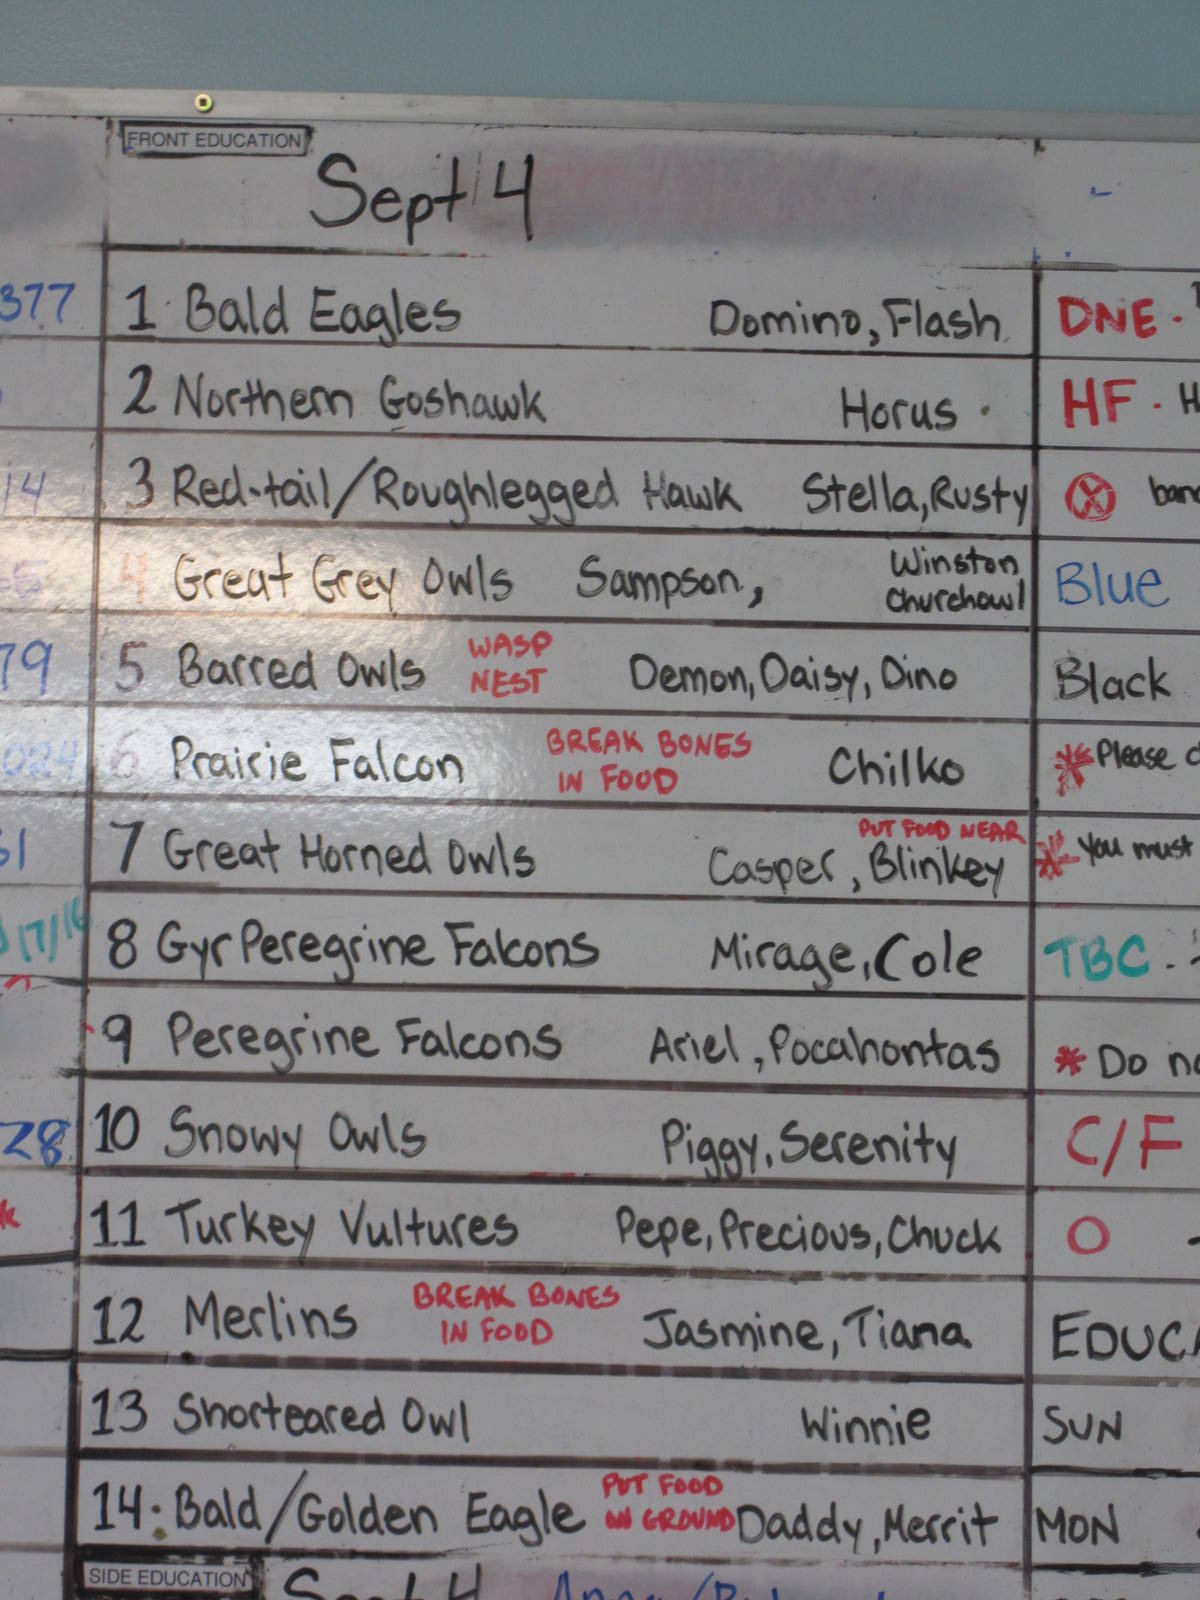 FRONT EDUCATION
Sept 4
377 1 Bald Eagles Domino, Flash DNE.
2 Northern Goshawk Horus HF.
14 3 Red-tail/Roughlegged Hawk Stella, Rusty
4 Great Grey Owls Sampson, Winston Churchowl Blue
79 5 Barred Owls WASP NEST Demon, Daisy, Dino Black
024 6 Prairie Falcon BREAK BONES IN FOOD Chilko * Please
7 Great Horned Owls Casper, PUT FOOD NEAR Blinkey * You must
17/16 8 Gyr Peregrine Falcons Mirage, Cole TBC.
9 Peregrine Falcons Ariel, Pocahontas * Do
28 10 Snowy Owls Piggy, Serenity C/F
11 Turkey Vultures Pepe, Precious, Chuck O
12 Merlins BREAK BONES IN FOOD Jasmine, Tiana EDUCA
13 Shorteared Owl Winnie SUN
14. Bald/Golden Eagle PUT FOOD ON GROUND Daddy, Merrit MON
SIDE EDUCATION Sept 4